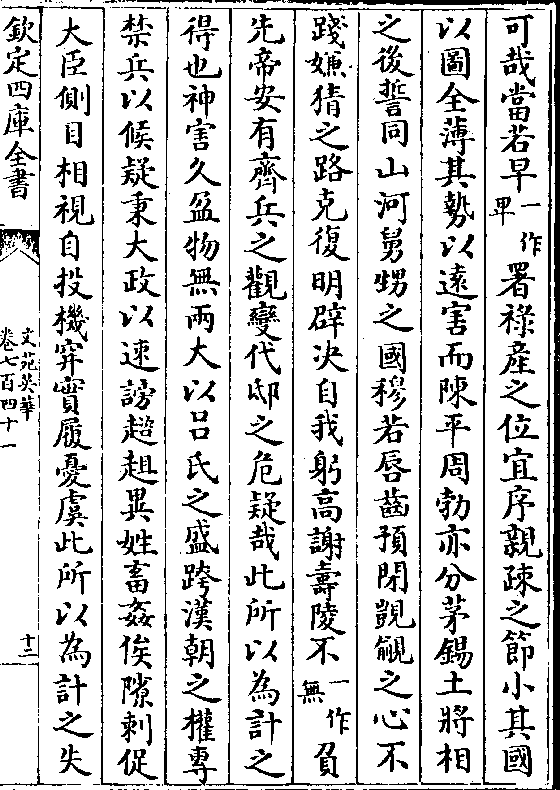 可哉當若早一作卑署祿產之位宜序親疎之節小其國
以圖全薄其勢以遠害而陳平周勃亦分茅錫土將相
之後誓同山河舅甥之國穆若唇齒預閉覬覦之心不
踐嫌猜之路克復明辟决自我躬高謝壽陵不一作無負
先帝安有齊兵之觀變代邸之危疑哉此所以為計之
得也神害久盆物無兩大以吕氏之盛跨漢朝之權專
禁兵以候疑秉大政以速謗趦趄異姓畜姦俟隙刺促
大臣側目相視自投機穽實履憂虞此所以為計之失
欽定四庫全書
文苑英華
卷七百四十一
十二